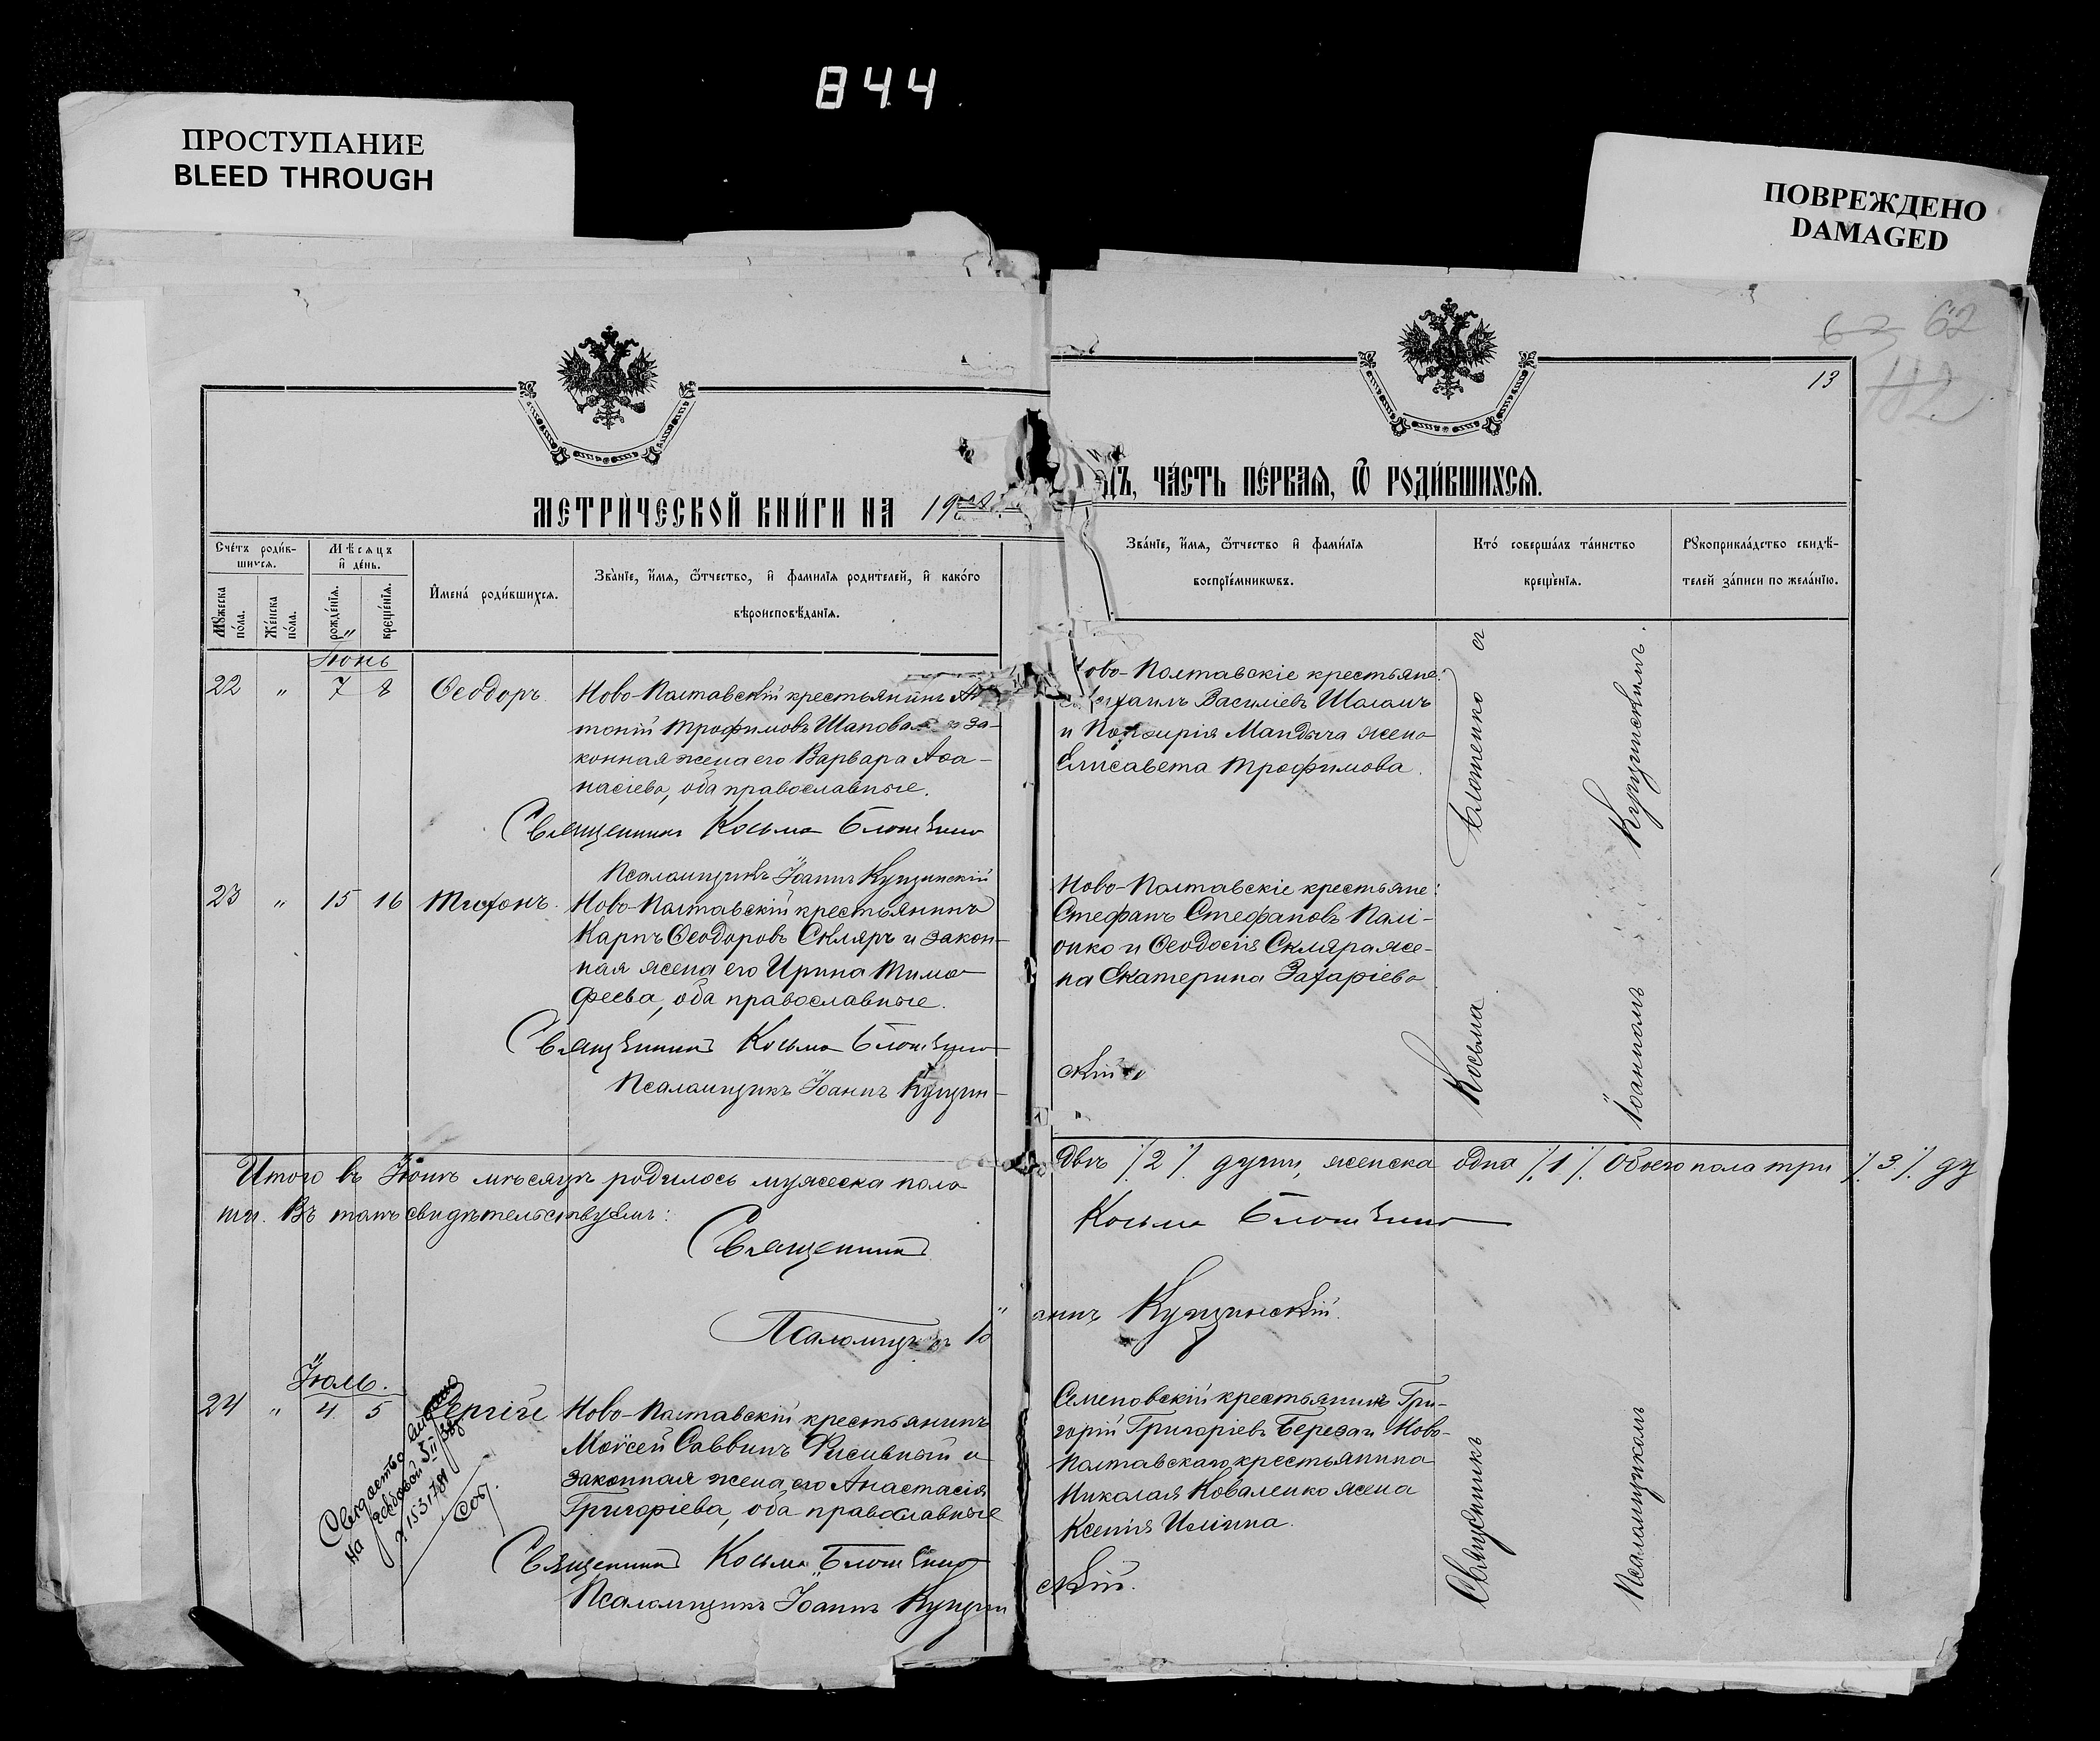 844
ПРОСТУПАНИЕ
BLEED THROUGH
ПОВРЕЖДЕНО
DAMAGED
62 62
13
МЕТРИ́ЧЕСКОЙ КНИ́ГИ НА 19
ДЪ, ЧА́СТЬ ПЕ́РВАЯ, Ѿ РОДИ́ВШИХСЯ.
Сче́тъ роди́в-
шихся.
Мѣсяцъ
и де́нь.
Мꙋ́жеска по́ла.
Же́нска по́ла.
рожде́нїя.
креще́нїя.
Имена́ роди́вшихся.
Зва́нїе, и́мя, ѻ́тчество, и фами́лїя родителей, и како́го
вѣроисповѣ́данїя.
Зва́нїе, и́мя, ѻ́тчество и фами́лїя
воспрїе́мникѡвъ.
Кто́ соверша́лъ та́инство
креще́нїя.
Рꙋкоприкла́дство свидѣ́-
телей за́писи по жела́нїю.
Іюнь
22 " 7 8 Ѳеодоръ.
Ново-Полтавскій крестьянинъ Ан
тоній Трофимовъ Шаповал и за-
конная жена его Варвара Аѳа-
насіева, оба православные.
Священникъ Косьма Блошенко
Псаломщикъ Іоаннъ Кущинскій
ово-Полтавскіе крестьяне:
Михаилъ Василіевъ Шаламъ
и Порфирія Мандыча жена
Елисавета Трофимова.
23 " 15 16 Тихонъ.
Ново-Полтавскій крестьянинъ
Карпъ Ѳеодоровъ Скляръ и закон-
ная жена его Ирина Тимо
феева, оба православные.
Священникъ Косьма Блошенко
Псаломщикъ Іоаннъ Кущин-
Ново-Полтавскіе крестьяне:
Стефанъ Стефановъ Палі-
енко и Ѳеодосія Скляра же-
на Екатерина Захаріева
скій
Итого въ Іюнѣ мѣсяцѣ родилось мужеска пола
двѣ ⁒ 2 ⁒ души, женска одна ⁒ 1 ⁒ Обоего пола три ⁒ 3 ⁒ ду
ши. Въ томъ свидѣтельствуемъ:
Священникъ
Косьма Блошенко
Псаломщикъ Іо
аннъ Кущинскій.
Іюль.
24 " 4 5 Сергій
Ново-Полтавскій крестьянинъ
Моѵсей Саввинъ и
законная жена его Анастасія
Григоріева, оба православные
Священникъ Косьма Блошенко
Псаломщикъ Іоаннъ Кущин
Семеновскій крестьянинъ Гри-
горій Григоріевъ Береза и Ново-
полтавскаго крестьянина
Николая Коваленко жена
Ксенія Ильина.
скій.
Священникъ Косьма Блошенко съ
Псаломщикомъ Іоанномъ Кущинскимъ.